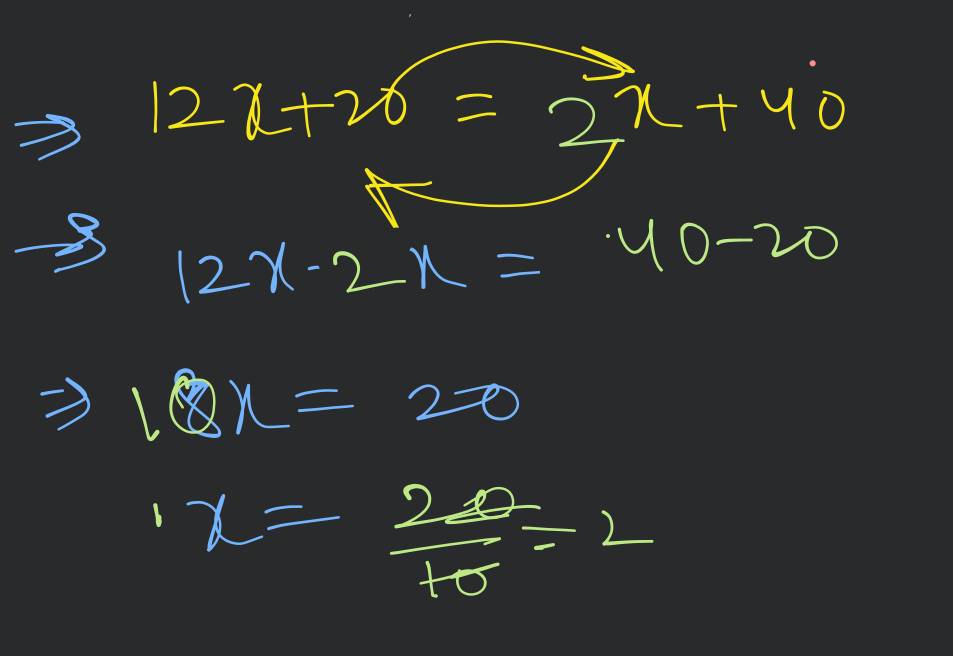 ⇒ 12x+20 = 2x+40
⇒ 12x-2x = 40-20
⇒ 10x = 20
x = 20/10 = 2